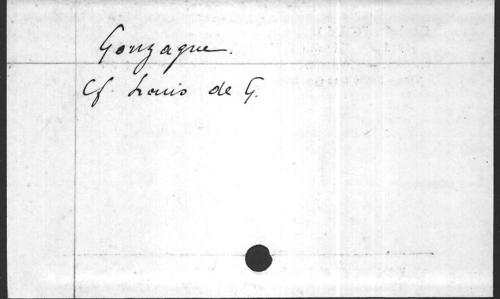 Gonzague.
Cf Louis de G.